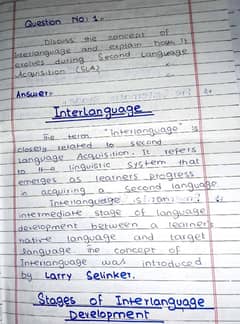 Question No: 1.
Discuss the concept of
interlanguage and explain how it
evolves during Second Language
Acquisition (SLA)
Answer=
Interlanguage
The term "Interlanguage" is
closely related to second
Language Acquisition. It refers
to the linguistic system that
emerges as learners progress
in acquiring a second language
Interlanguage is
intermediate stage of language
development between a learner's
native language and target
language The concept of
Interlanguage was introduced
by Larry Selinker.
Stages of Interlanguage
Development